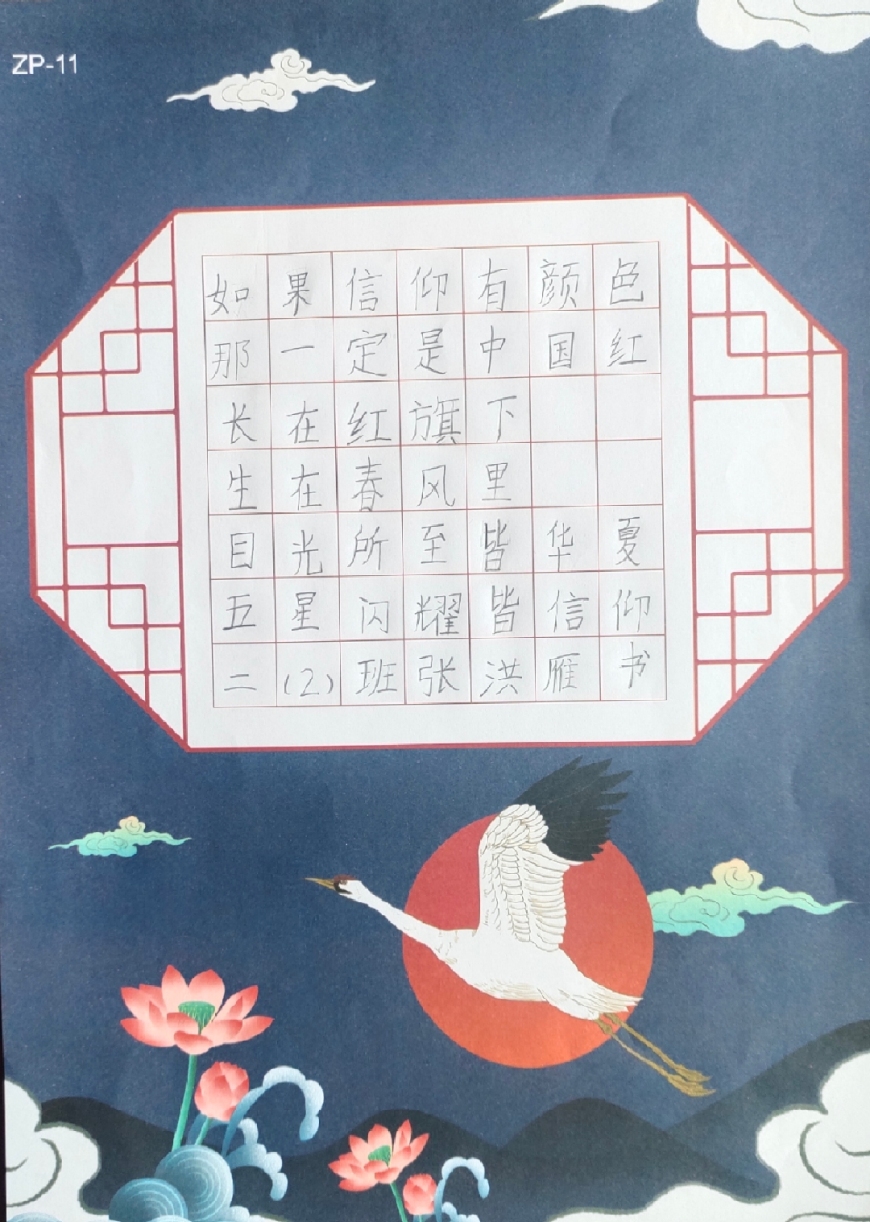 ZP-11
如果信仰有颜色
那一定是中国红
长在红旗下
生在春风里
目光所至皆华夏
五星闪耀皆信仰
二(2)班张洪雁书